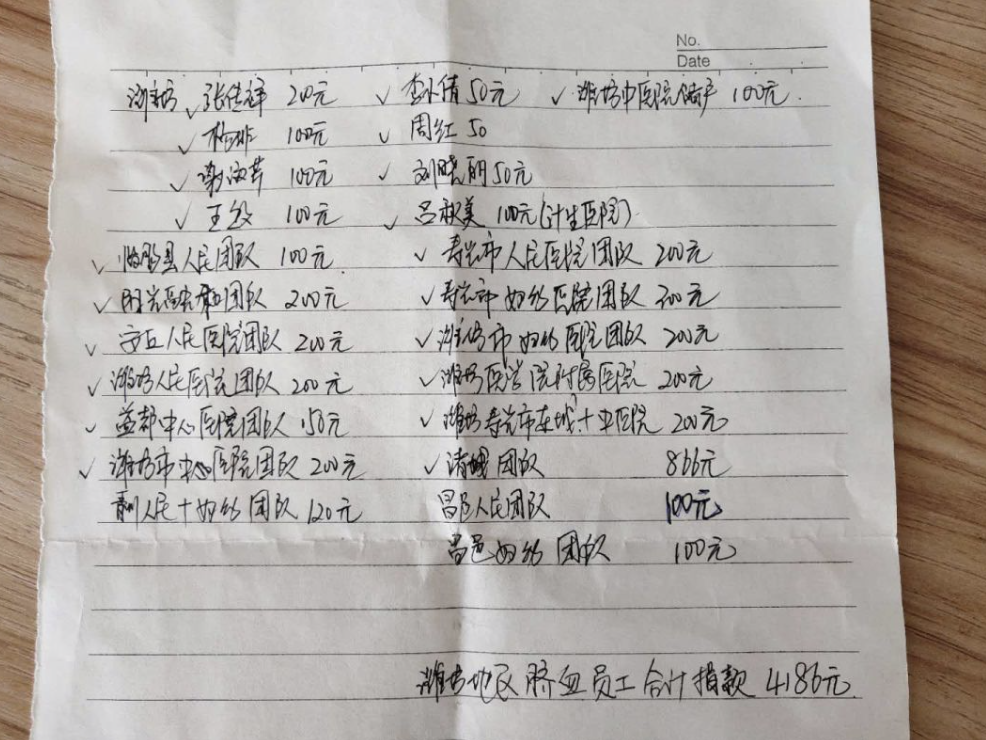 No.
Date
潍坊 ✓ 张佳祥 200元 ✓ 李小倩 50元 ✓ 潍坊中医院 100元.
✓ 100元 ✓ 周红 50
✓ 谢淑萍 100元 ✓ 刘晓丽 50元
✓ 王毅 100元 ✓ 吕淑美 100元(计生医院)
✓ 临朐县人民团队 100元 ✓ 寿光市人民医院团队 200元
✓ 阳光融和团队 200元 ✓ 寿光市妇幼医院团队 300元
✓ 安丘人民医院团队 200元 ✓ 潍坊市妇幼医院团队 200元
✓ 潍坊人民医院团队 200元 ✓ 潍坊医学院附属医院 200元
✓ 益都中心医院团队 150元 ✓ 潍坊寿光市东城+中医院 200元
✓ 潍坊市中心医院团队 200元 ✓ 诸城团队 866元
青州人民+妇幼团队 120元 昌邑人民团队 100元
昌邑妇幼团队 100元
潍坊地区脐血员工合计捐款 4186元